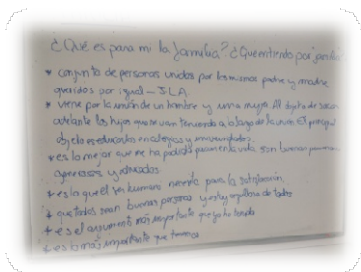 ¿Qué es para mi la familia? ¿Que entiendo por
* conjunto de personas unidos por los mismos padre y madre
queridos por igual - J.L.A.
* viene por la unión de un hombre y una mujer. Al objeto de sacar
adelante los hijos que se van teniendo a lo largo de la vida. El principal
objeto es educarlos
* es lo mejor que me ha podido pasar en la vida. son buenas personas
generosos y educados.
* es lo que el ser humano necesita para la satisfacción
* que todos sean buenas personas y estoy orgullosa de todos
* es el argumento más importante que yo he tenido
* es lo más importante que tenemos